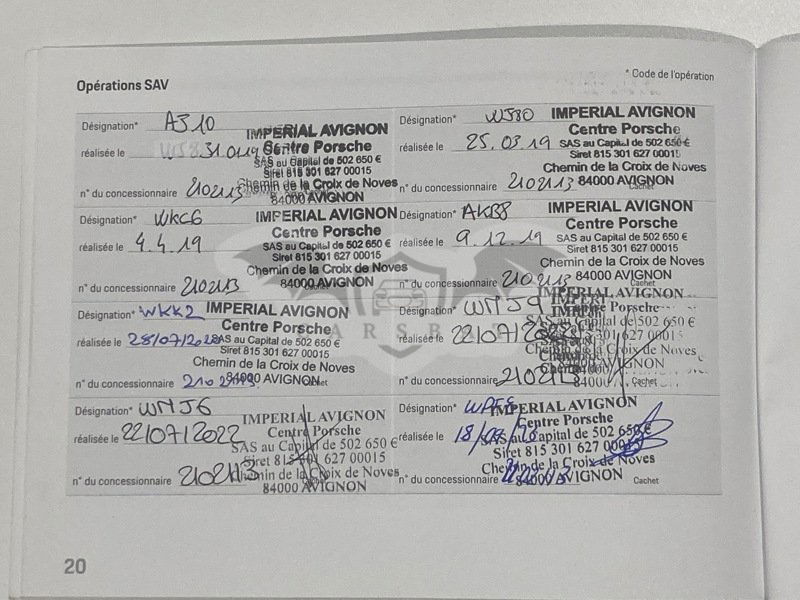 Opérations SAV
* Code de l'opération
Désignation* AJ10
réalisée le 31.01.19
n° du concessionnaire 2102113
IMPERIAL AVIGNON
Centre Porsche
SAS au Capital de 502 650 €
Siret 815 301 627 00015
Chemin de la Croix de Noves
84000 AVIGNON
Désignation* WJ80
réalisée le 25.03.19
n° du concessionnaire 2102113
IMPERIAL AVIGNON
Centre Porsche
SAS au Capital de 502 650 €
Siret 815 301 627 00015
Chemin de la Croix de Noves
84000 AVIGNON
Cachet
Désignation* WKC6
réalisée le 4.4.19
n° du concessionnaire 2102113
IMPERIAL AVIGNON
Centre Porsche
SAS au Capital de 502 650 €
Siret 815 301 627 00015
Chemin de la Croix de Noves
84000 AVIGNON
Cachet
Désignation* AKB8
réalisée le 9.12.19
n° du concessionnaire 2102113
IMPERIAL AVIGNON
Centre Porsche
SAS au Capital de 502 650 €
Siret 815 301 627 00015
Chemin de la Croix de Noves
84000 AVIGNON
Cachet
Désignation* WKK2
réalisée le 28/07/2020
n° du concessionnaire
IMPERIAL AVIGNON
Centre Porsche
SAS au Capital de 502 650 €
Siret 815 301 627 00015
Chemin de la Croix de Noves
84000 AVIGNON
Cachet
Désignation* WMJ9
réalisée le 22/07/
n° du concessionnaire
IMPERIAL AVIGNON
Centre Porsche
SAS au Capital de 502 650 €
301 627 00015
Chemin de la Croix de Noves
84000 AVIGNON
Cachet
Désignation* WMJ6
réalisée le 22/07/2022
n° du concessionnaire 2102113
IMPERIAL AVIGNON
Centre Porsche
SAS au Capital de 502 650 €
Siret 815 301 627 00015
Chemin de la Croix de Noves
84000 AVIGNON
Désignation*
réalisée le 18/
n° du concessionnaire
IMPERIAL AVIGNON
Centre Porsche
SAS au Capital de 502 650 €
Siret 815 301 627 00015
Chemin de la Croix de Noves
84000 AVIGNON
Cachet
20